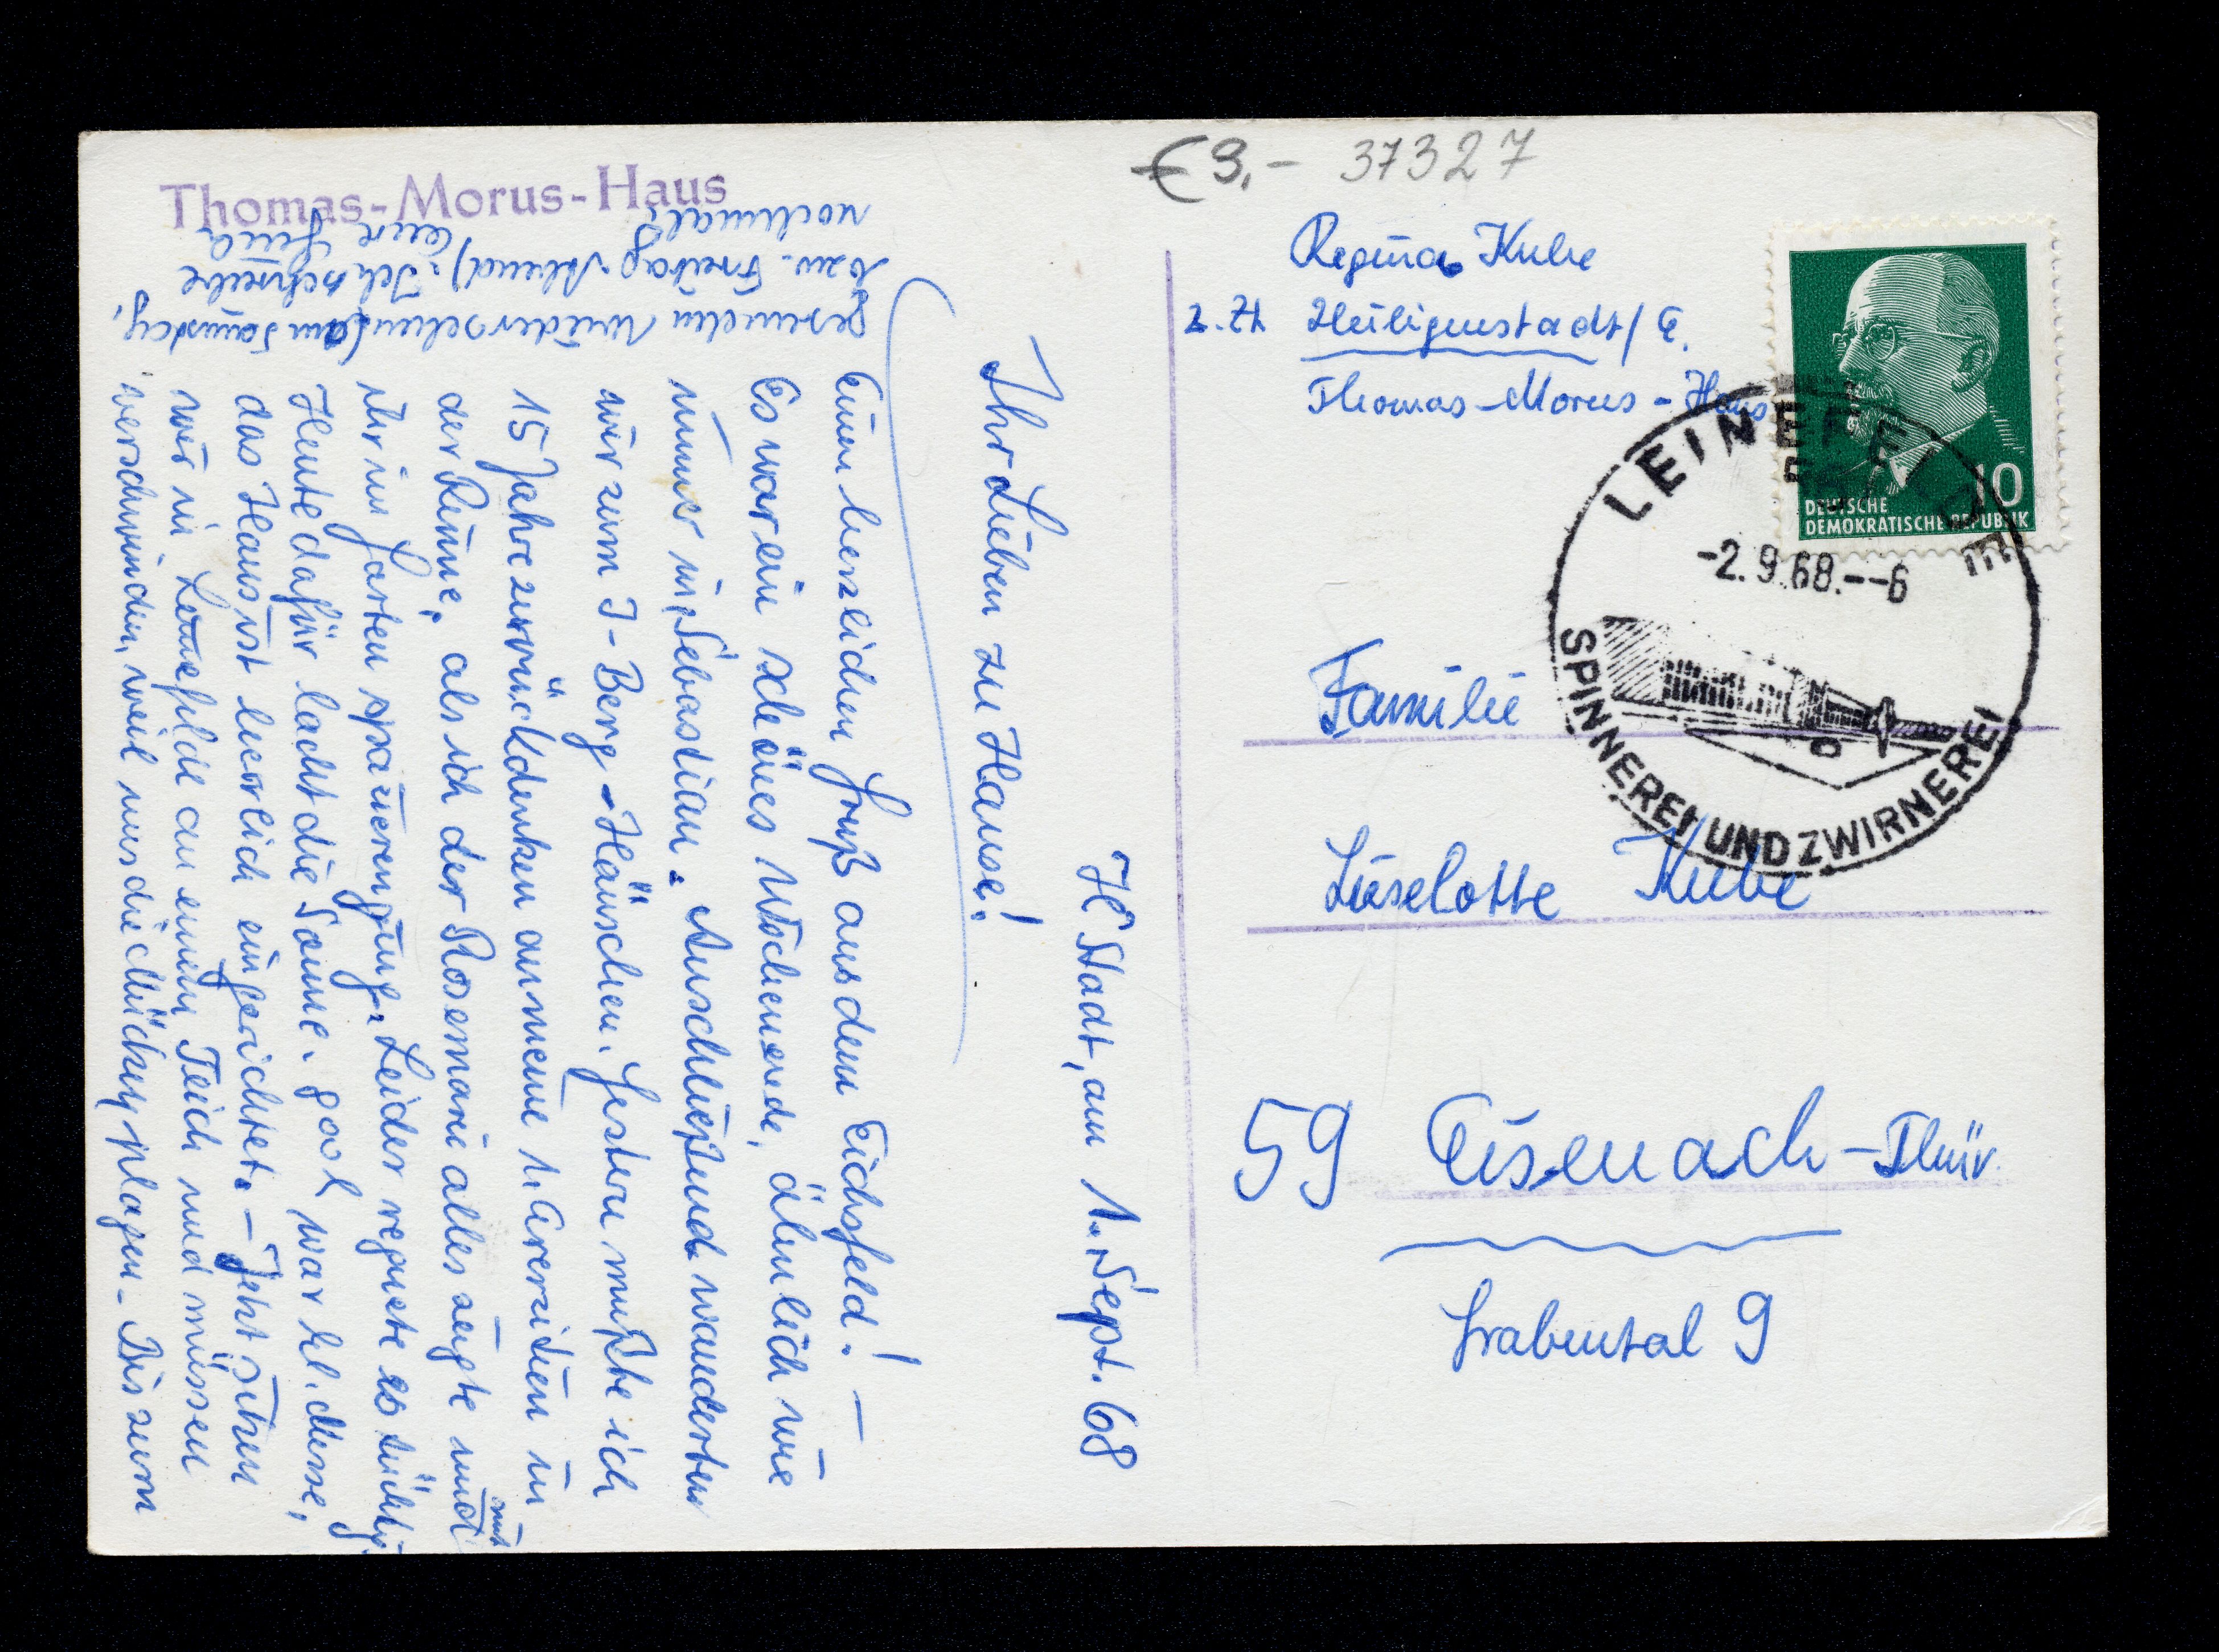 Thomas-Morus-Haus
€ 3,- 37327
Regina Kube
z. Zt. Heiligenstadt / E.
Thomas-Morus-Haus
10
DEUTSCHE
DEMOKRATISCHE REPUBLIK
LEINEFELDE
-2.9.68.--6
SPINNEREI UND ZWIRNEREI
Familie
Lieselotte Kube
59 Eisenach-Thür.
Grabental 9
H Stadt, am 1. Sept. 68
Ihr Lieben zu Hause!
Einen herzlichen Gruß aus dem Eichsfeld! –
Es war ein schönes Wochenende, ähnlich wie
immer in Sebastian. Anschließend wanderten
wir zum I-Berg-Häuschen. Gestern mußte ich
15 Jahre zurückdenken an meine 1. Exerzitien in
der Rinne, als ich der Rosemarie alles zeigte und
mit
ihr im Garten spazierenging. Leider regnete es tüchtig.
Heute dafür lacht die Sonne. Grad war hl. Messe,
das Haus ist herrlich eingerichtet. – Jetzt sitzen
wir in Leinefelde an einem Teich und müssen
verschwinden, weil uns die Mücken plagen. Bis zum
gesunden Wiedersehen (am Samstag,
bzw. Freitag Abend). Ich schreibe
nochmal! Eure Gina